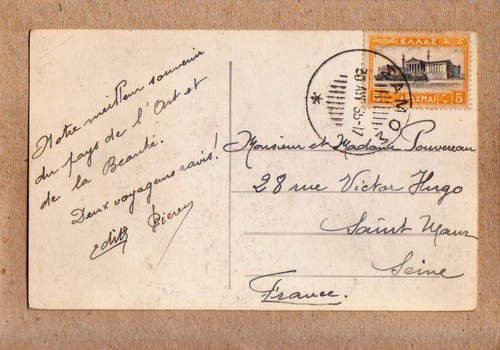 Notre meilleur souvenir
du pays de l'Art et
de la Beauté.
Deux voyageurs ravis!
Edith Pierre
ΕΛΛΑΣ
5 ΔΡΑΧΜΑΙ 5
ΣΑΜΟΣ
30 ΑΥΓ 35-17
Monsieur et Madame Pouvereau
28 rue Victor Hugo
Saint Maur
Seine
France.